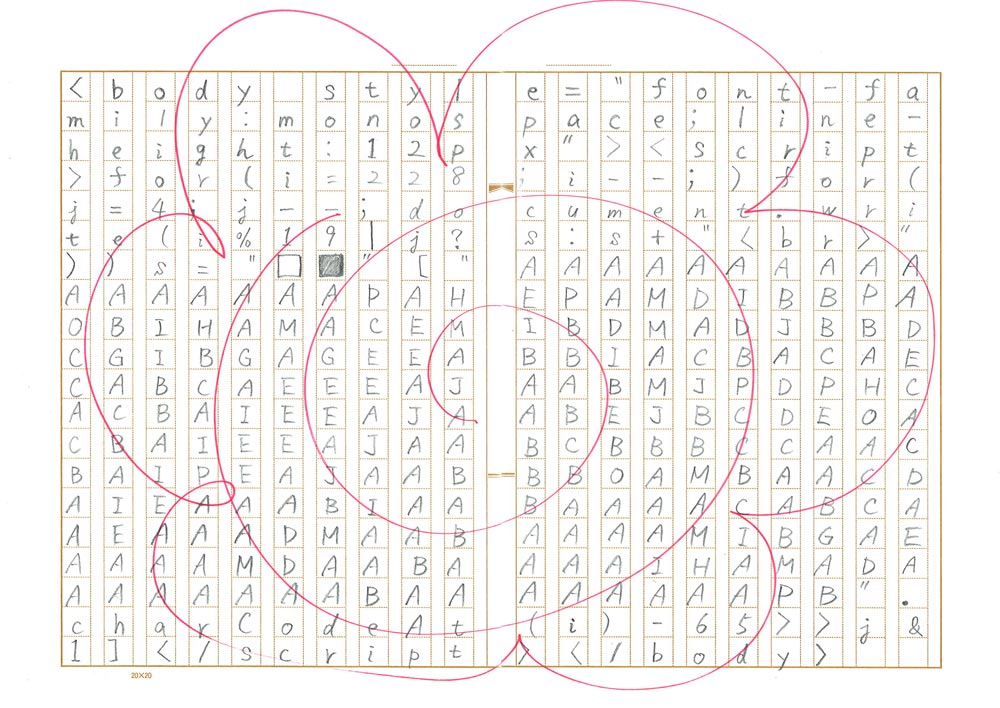 <body style="font-fa
mily:monospace;line-
height:12px"><script
>for(i=228;i--;)for(
j=4;j--;document.wri
te(i%19|j?s:s+"<br>"
))s="□■"["AAAAAAAAAA
AAAAAAAPAHEPAMDIBBPA
OBIHAMACEMIBDMADJBBD
CGIBGAGEEABBIACBACAE
CABCAEEEAJAABMJPDPHC
ACBAIEEAJAABEJBCDEOA
CBAIEEAJAABCBBBCCAAC
BAIPEAJAABBBOAMBAACD
AIEAAABIAABAAAACABCA
AEAAADMAABAAAAMIBGAE
AAAAMDAABAAAAIHAMADA
AAAAAAABAAAAAAAAPB".
charCodeAt(i)-65>>j&
1]</script></body>
20×20